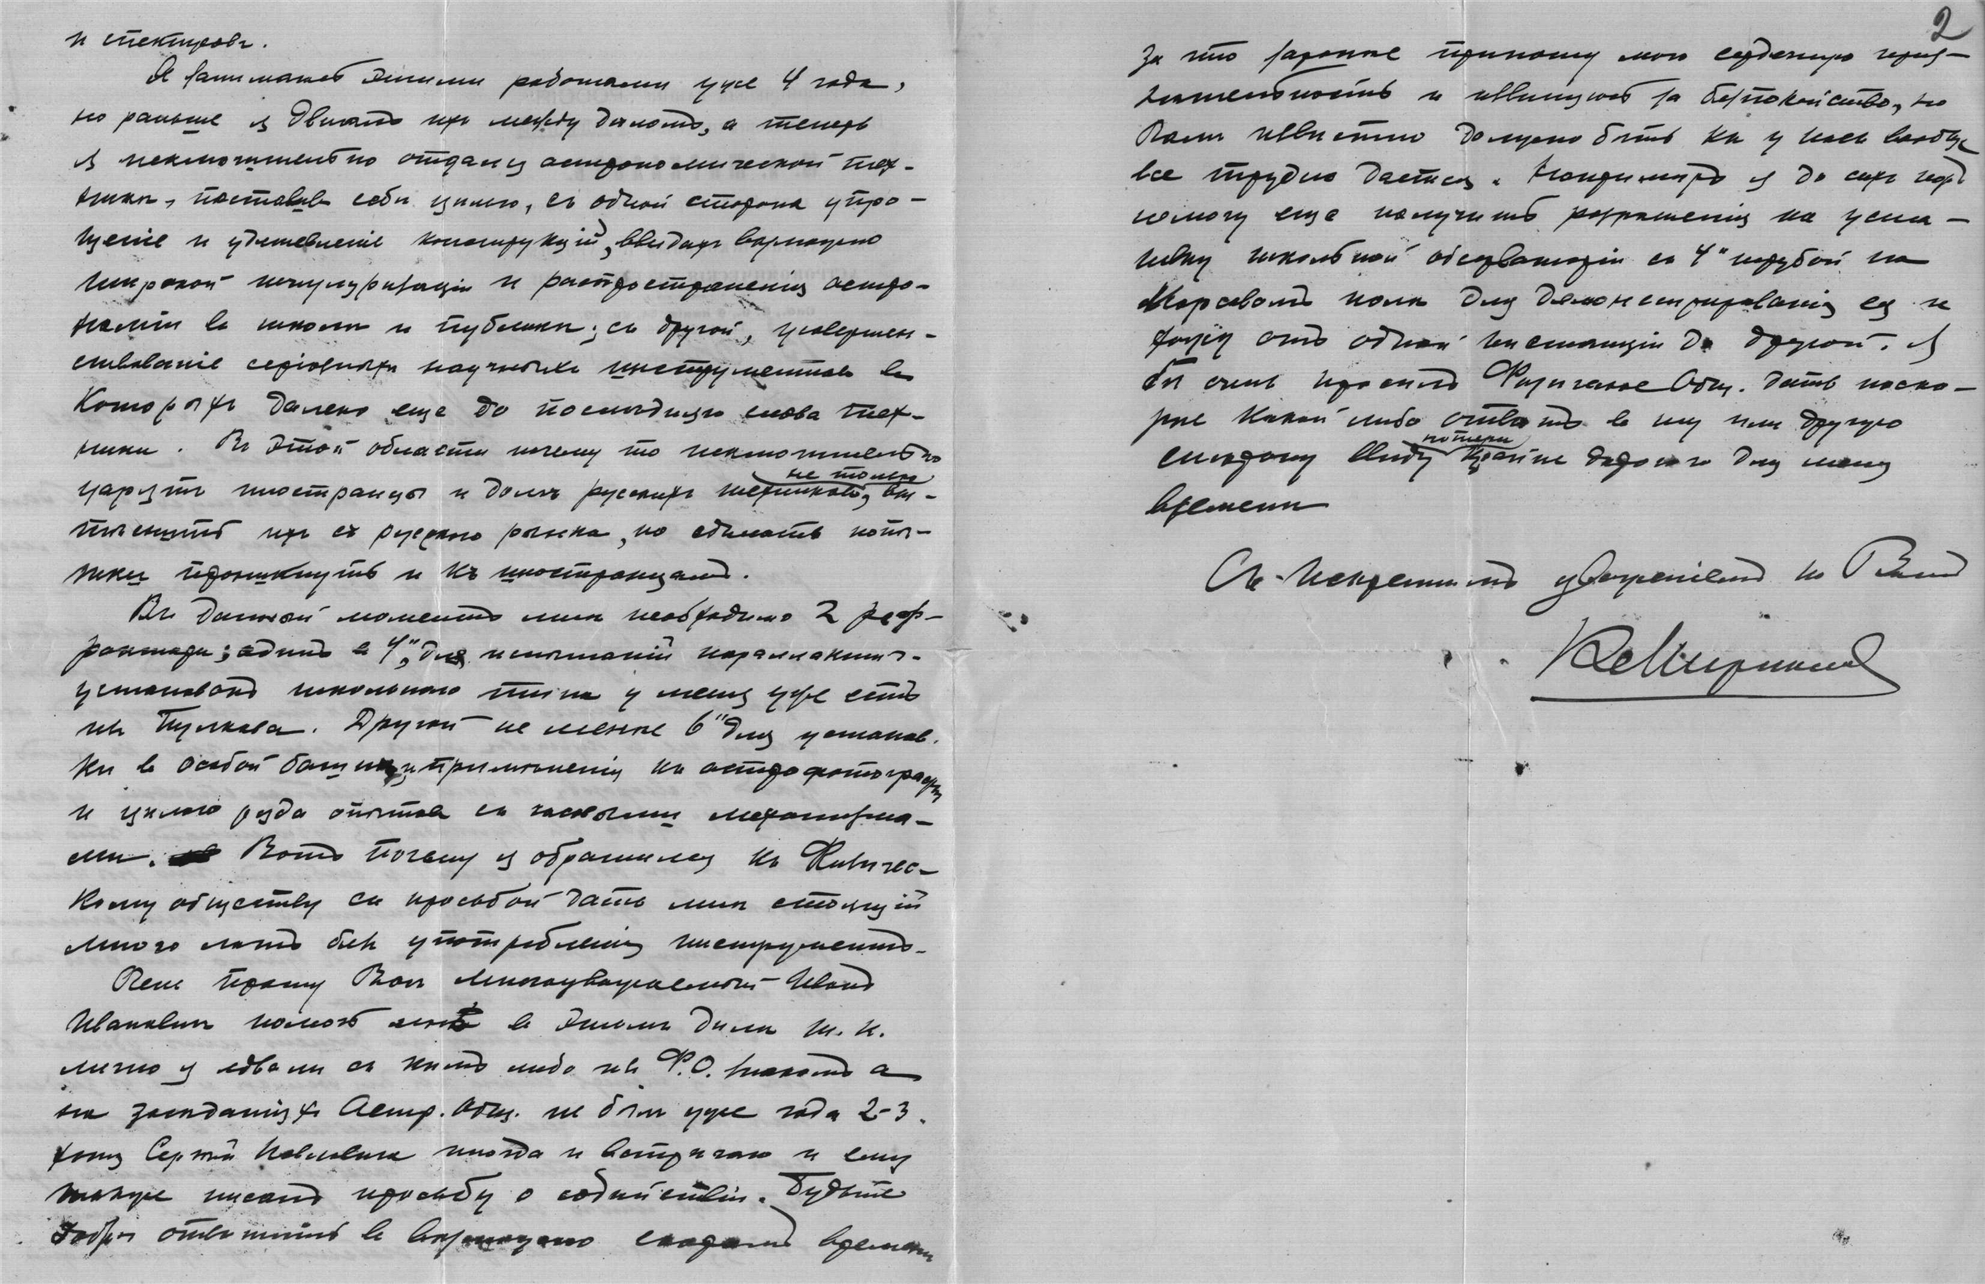 и спектровъ.
Я занимаюсь этими работами уже 4 года,
но раньше я двигалъ ихъ между дѣломъ, а теперь
я исключительно отдался астрономической тех-
никѣ, поставивъ себѣ цѣлью, съ одной стороны упро-
щеніе и удешевленіе конструкцій, ввидахъ возможно
широкой популяризаціи и распространенія астро-
номіи въ школѣ и публикѣ; съ другой, усовершен-
ствованіе серіозныхъ научныхъ инструментовъ въ
которыхъ далеко еще до послѣдняго слова тех-
ники. Въ этой области почему то исключительно
царятъ иностранцы и долгъ русскихъ техниковъ не только вы-
тѣснить ихъ съ русскаго рынка, но сдѣлать попы-
тки проникнуть и къ иностранцамъ.
Въ данный моментъ мнѣ необходимо 2 реф-
рактора; одинъ въ 4", для испытаній параллактич.
установокъ школьнаго типа у меня уже есть
изъ Пулкова. Другой не менѣе 6" для установ.
ки въ особой башнѣ, примѣненія къ астрофотографіи
и цѣлаго ряда опытовъ съ часовыми механизма-
ми. Вотъ почему я обратился къ Физичес-
кому обществу съ просьбой дать мнѣ стоящій
много лѣтъ безъ употребленія инструментъ.
Очень прошу Васъ многоуважаемый Иванъ
Ивановичъ помочь мнѣ въ этомъ дѣлѣ т. к.
лично я едва ли съ кѣмъ либо изъ Ф.О. знакомъ а
на засѣданіяхъ Астр. Общ. не былъ уже года 2-3.
хотя Сергѣй Павловича иногда и встрѣчаю и ему
также писалъ просьбу о содѣйствіи. Будьте
добры отвѣтить въ возможно скоромъ времени
2
за что заранѣе приношу мою сердечную приз-
нательность и извиняюсь за безпокойство, но
Вамъ извѣстно должно быть какъ у насъ вообще
все трудно дается. Напримѣръ я до сихъ поръ
немогу еще получить разрѣшенія на уста-
новку школьной обсерваторіи съ 4" трубой на
Марсовомъ полѣ для демонстрированія ея и
хожу отъ одной инстанціи до другой. Я
бы очень просилъ Физическое Общ. дать поско-
рѣе какой либо отвѣтъ въ ту или другую
сторону ввиду потери крайне дорогого для меня
времени
Съ искреннимъ уваженіемъ къ Вамъ